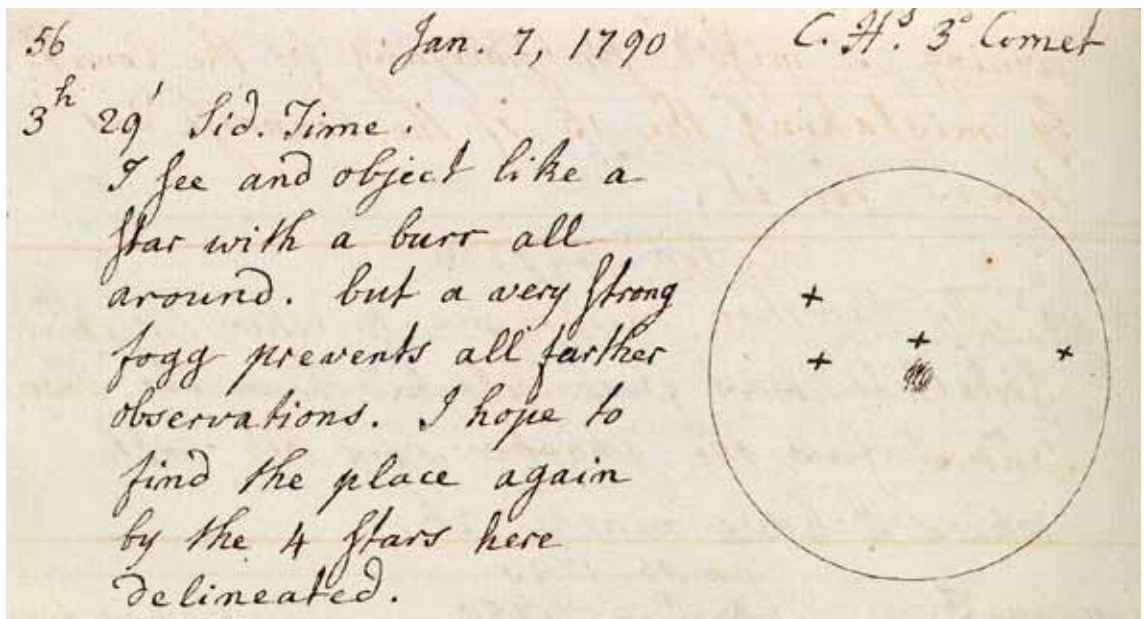 56 Jan. 7, 1790 C. H.s 3.d Comet
3h 29' Sid. Time.
I see and object like a
star with a burr all
around. but a very strong
fogg prevents all farther
observations. I hope to
find the place again
by the 4 stars here
delineated.